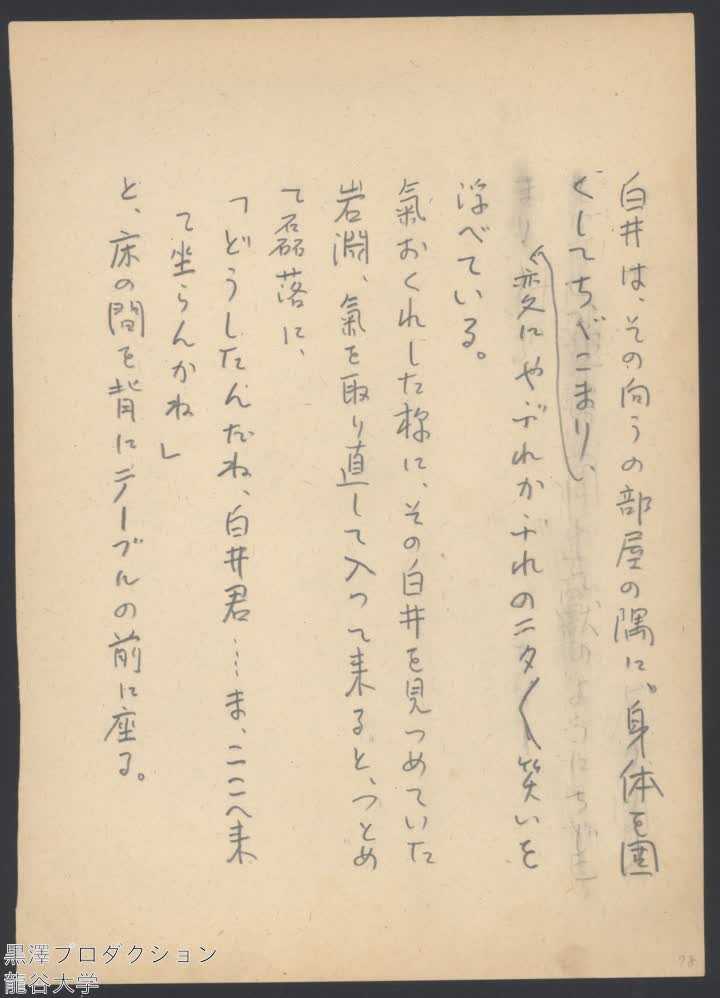 白井は、その向うの部屋の隅に、身体を固
くしてちゞこまり、
変にやぶれかぶれのニタ〱笑いを
浮べている。
氣おくれした様に、その白井を見つめていた
岩淵、氣を取り直して入って来ると、つとめ
て磊落に、
「どうしたんだね、白井君…ま、ここへ来
て坐らんかね」
と、床の間を背にテーブルの前に座る。
黒澤プロダクション
龍谷大学